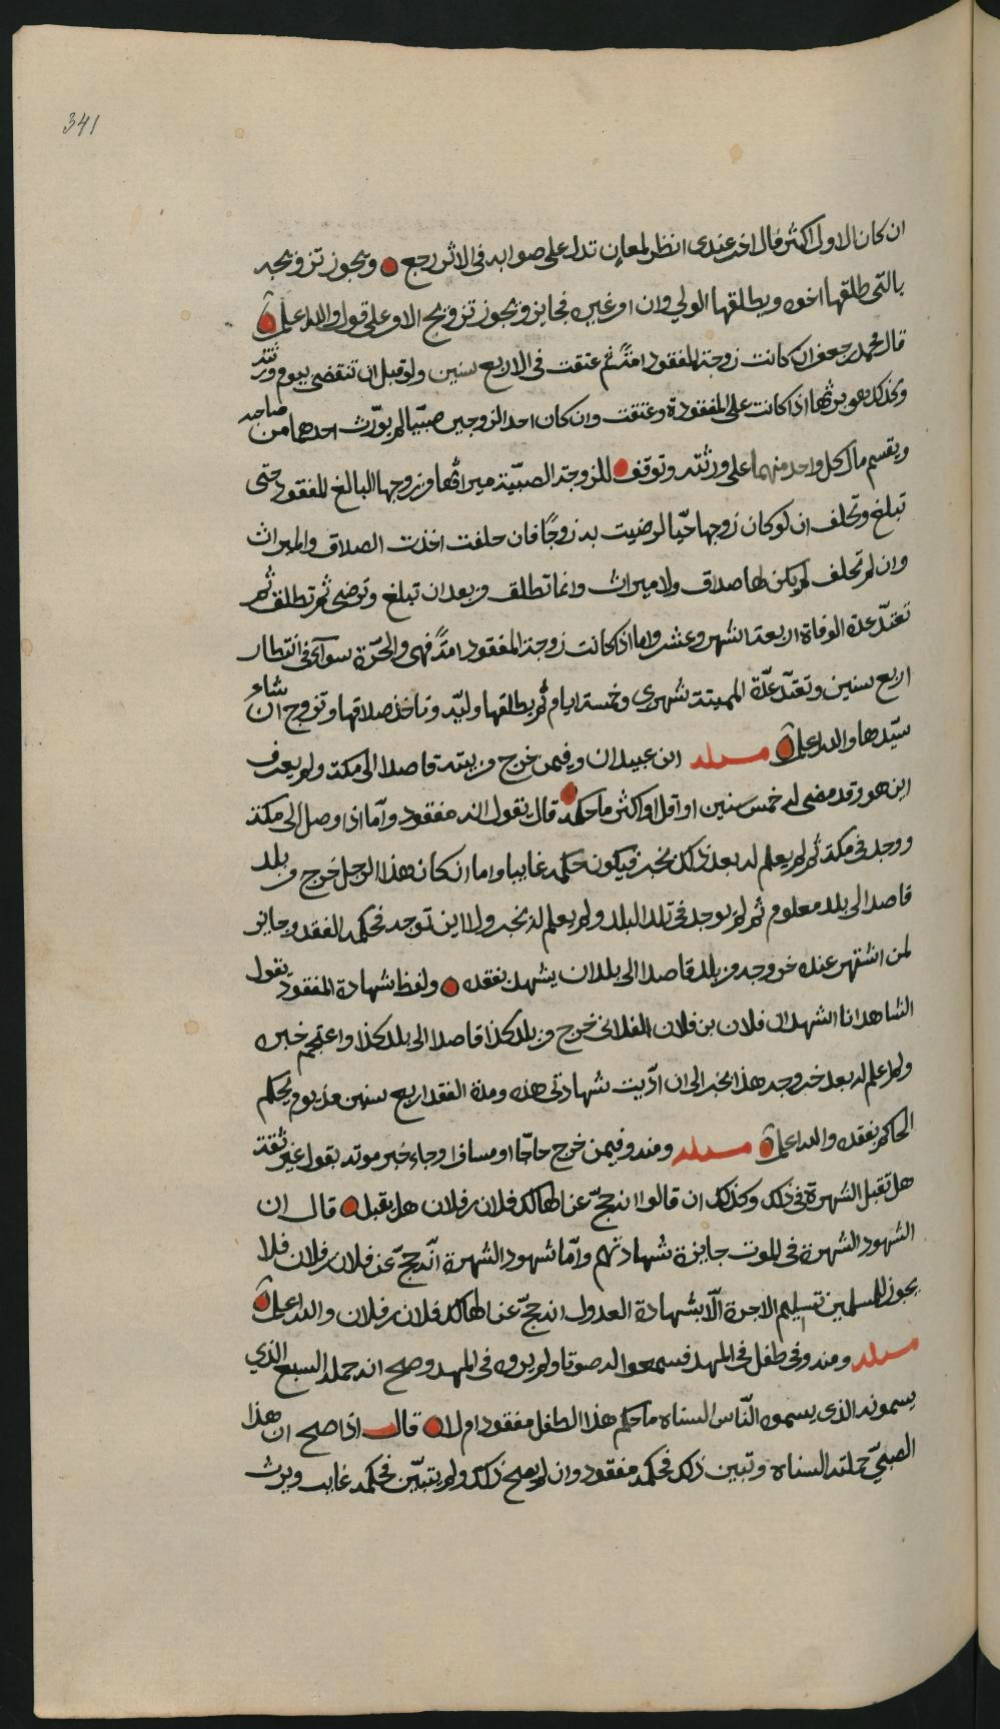 341
ان كان الاول اكثر قال اخر عندى انظر لمعان تدل على صوابه فى الاثر رجع ويجوز تزويجه
بالتى طلقها اخوه ويطلقها الولي وان اوغيره فجايز ويجوز تزويج الاو على قول والله اعلم
قال محمد بن جعفر ان كانت زوجة المفقود امة ثم عتقت فى الاربع سنين ولو قبل ان تنقضى بيوم ورثته
وكذلك هو يرثها اذا كانت على المفقودة وعتقت وان كان احد الزوجين صبيّا لم يورّث احدهما من صاحبه
ويقسم مال كل واحد منهما على ورثته وتوقف للزوجة الصبيّة ميراثها من زوجها البالغ المفقود حتى
تبلغ وتحلف ان لو كان زوجها حيّا لرضيت به زوجًا فان حلفت اخذت الصداق والميراث
وان لم تحلف لم يكن لها صداق ولا ميراث وانما تطلق من بعد ان تبلغ وترضى ثم تطلق ثم
تعتدّ عدة الوفاة اربعة اشهر وعشر واما اذا كانت زوجة المفقود امةً فهى والحرّة سوآء فى انتظار
اربع سنين وتعتدّ عدّة المميتة شهرين وخمسة ايام ثم يطلقها وليّه وتاخذ صداقها وتزوج ان شاء
سيّدها والله اعلم مسئله ابن عبيدان وفيمن خرج من بيته قاصدا الى مكة ولم يعرف
اين هو وقد مضى له خمس سنين او اقل او اكثر ما حكمه قال نقول انه مفقود وآمّا اذا وصل الى مكة
ووجد فى مكة ثم لم يعلم له بعد ذلك بخبر فيكون حكمه غايبا واما ان كان هذا الرجل خرج من بلد
قاصدا الى بلد معلوم ثم لم يوجد فى تلك البلد ولم يعلم له بخبر ولا اين توجه فحكمه الفقد وجايز
لمن اشتهر عنده خروجه من بلد قاصدا الى بلد ان يشهد بفقده ولفظ شهادة المفقود يقول
الشاهد انا اشهد ان فلان بن فلان الفلانى خرج من بلد كذا قاصدا الى بلد كذا واعتجم خبره
ولم اعلم له بعد خروجه هذا بخبر الى ان ادّيت شهادتى هذه ومدة الفقد اربع سنين مذ يوم يحكم
الحاكم بفقده والله اعلم مسئله ومنه وفيمن خرج حاجّا او مسافرا وجاء خبر موته بقول غير ثقة
هل تقبل الشهرة فى ذلك وكذلك ان قالوا انه حجّ عن الهالك فلان بن فلان هل يقبل قال ان
الشهود الشهرة فى الموت جايزة شهادتهم وامّا شهود الشهرة انّه حجّ عن فلان بن فلان فلا
يجوز للمسلمين تسليم الاجرة الّا بشهادة العدول انه حجّ عن الهالك فلان بن فلان والله اعلم
مسئله ومنه وفى طفل فى المهد فسمعوا له صوتا ولم يروه فى المهد وصح انه حمله السبع الذي
يسمونه الذى يسموه النّاس السناه ما حكم هذا الطفل مفقود ام لا قال اذا صح ان هذا
الصبيّ حملته السناه وتبين ذلك فحكمه مفقود وان لم يصح ذلك ولم يتبيّن فحكمه غايب ويرث